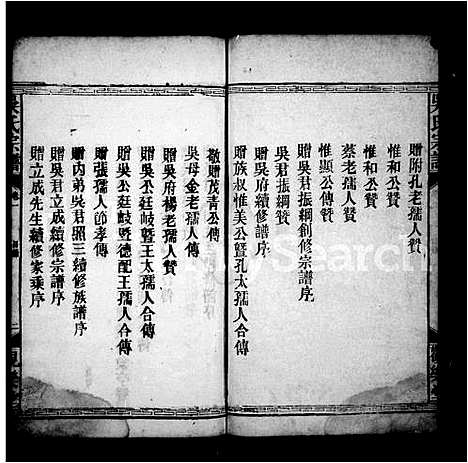 贈附孔老孺人贊
惟和公贊
惟和公傳
蔡老孺人贊
惟顯公贊
贈吳君振綱創修宗譜序
吳君振綱贊
贈吳府續修譜序
贈族叔惟美公暨孔太孺人合傳
敬贈茂青公傳
吳母金老孺人傳
贈吳府楊老孺人贊
贈吳公廷岐暨王太孺人合傳
贈吳公廷岐暨德配王孺人合傳
贈張孺人節孝傳
贈內弟吳君照三續修族譜序
贈吳君立成續修宗譜序
贈立成先生續修家乘序
吳氏宗譜
吳氏宗譜
MySearch